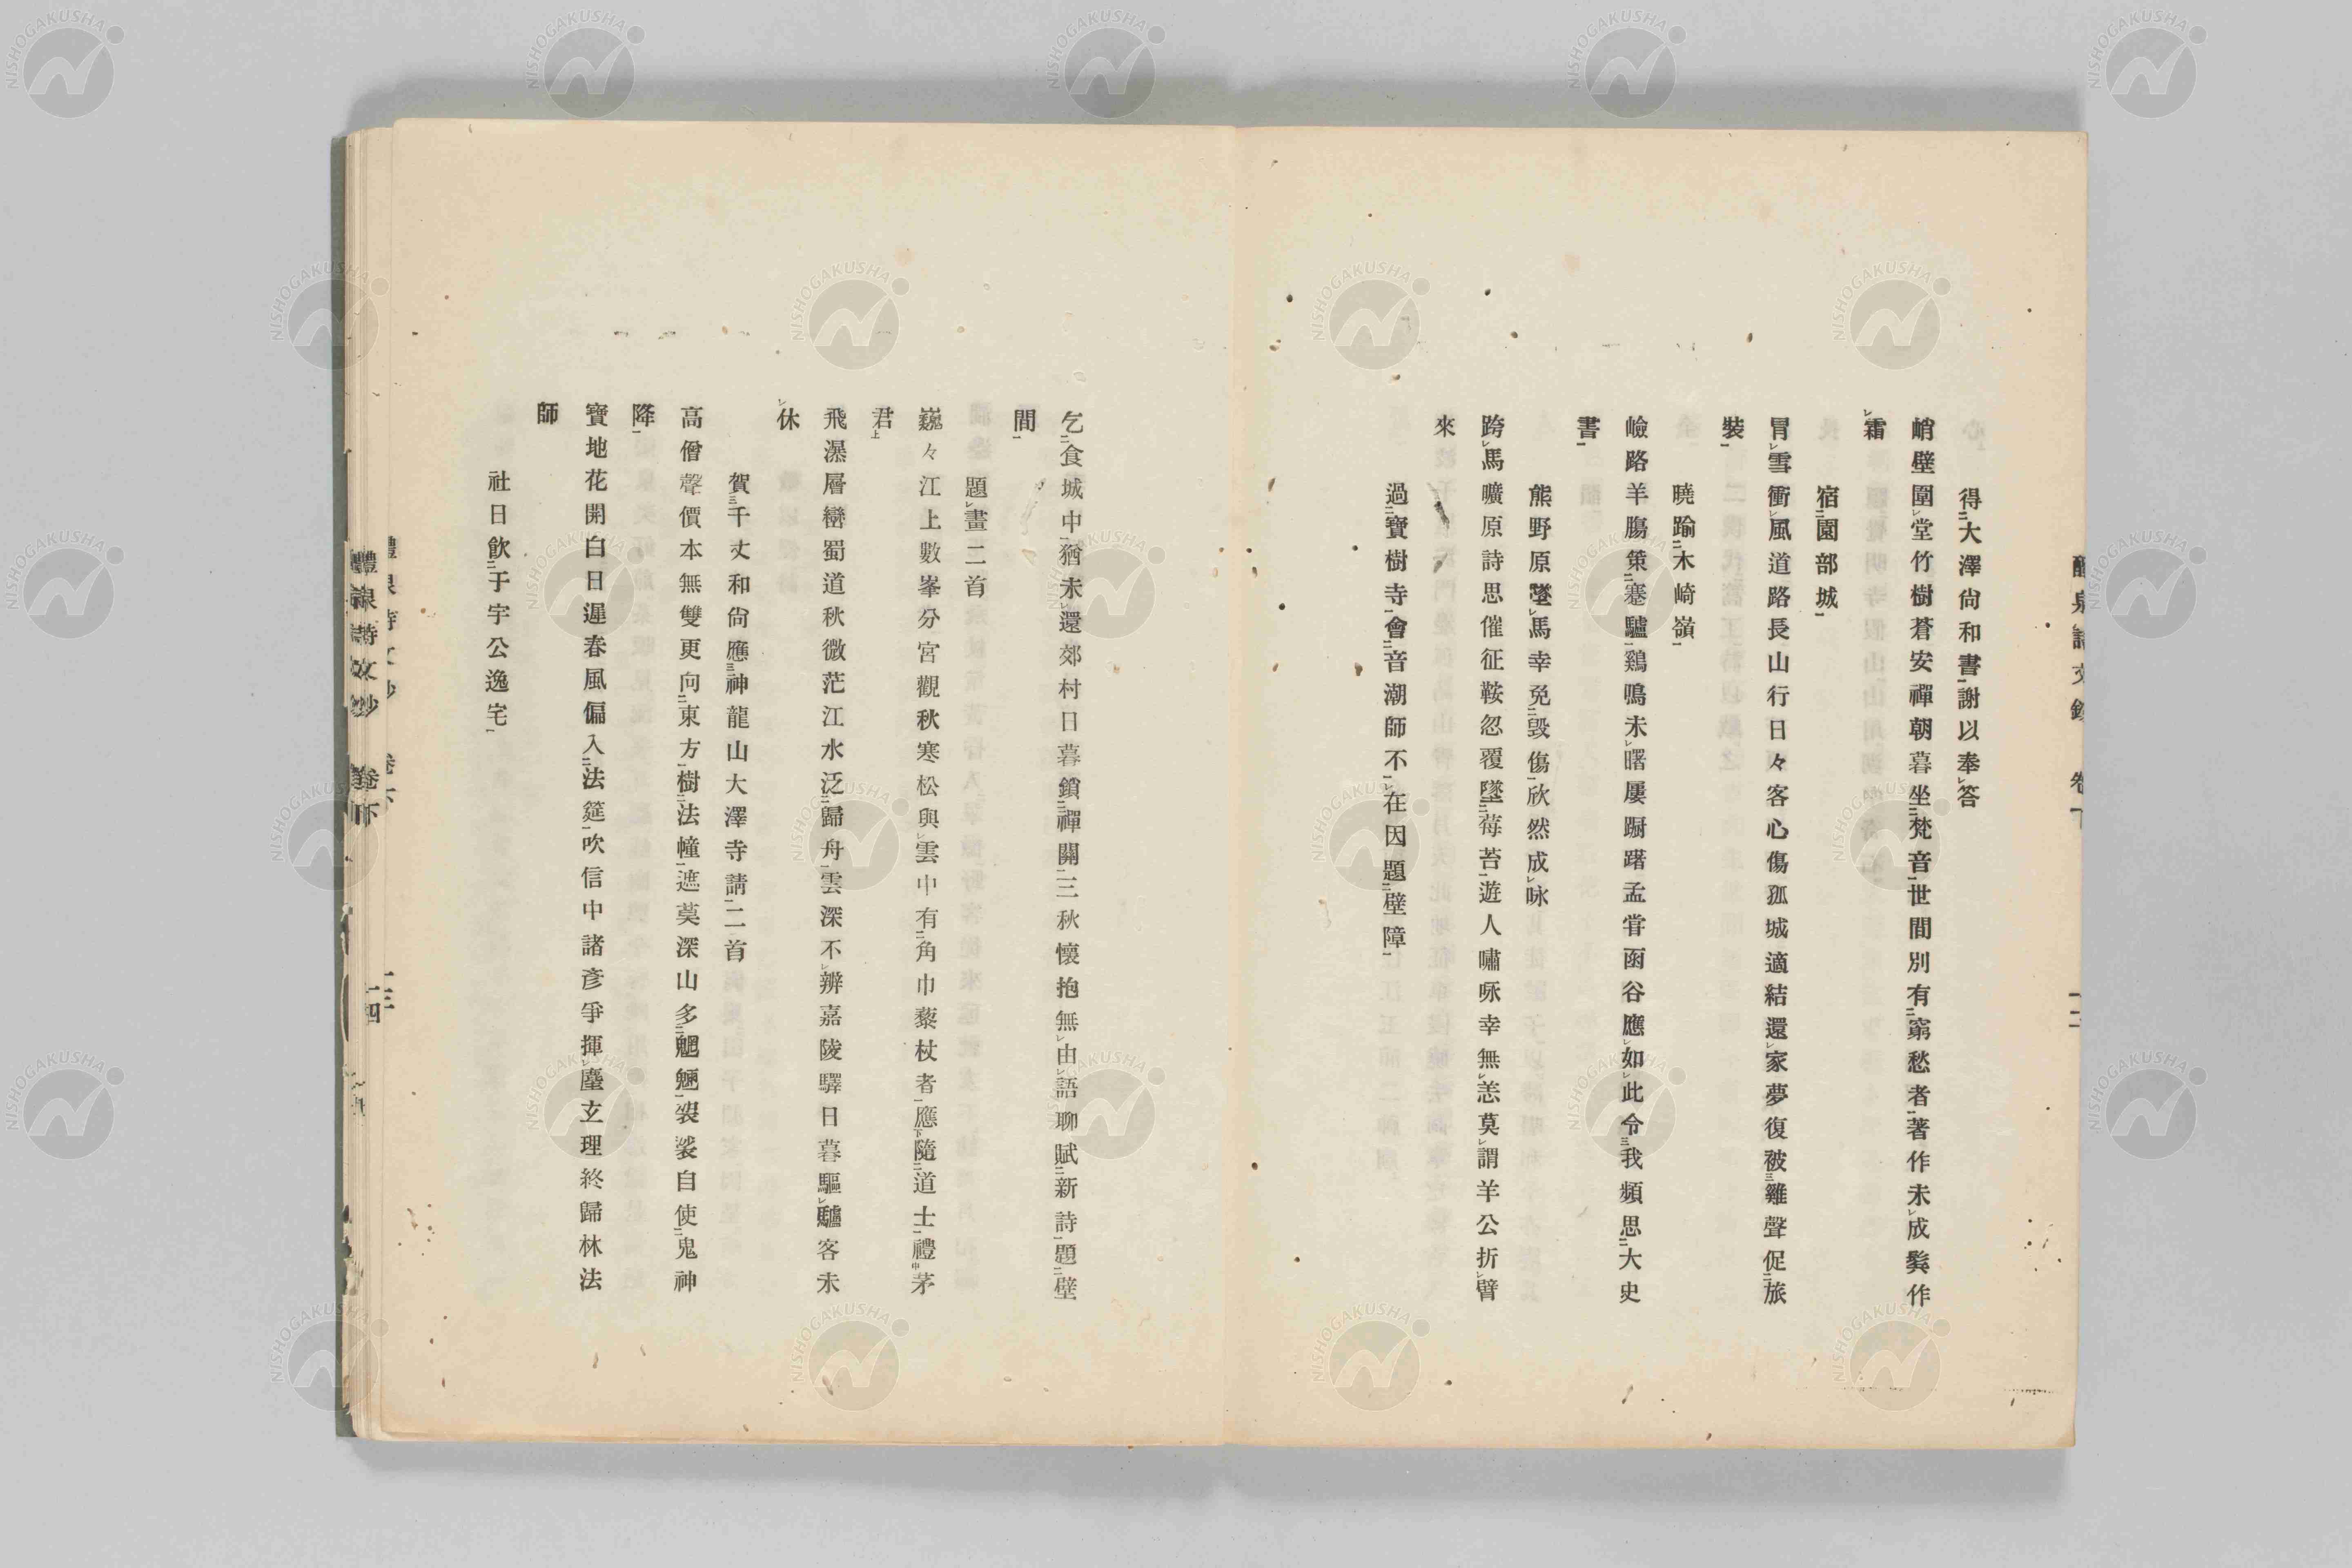 得大澤尙和書謝以奉答
峭壁圍堂竹樹蒼安禪朝暮坐梵音世間別有窮愁者著作未成鬂作
霜
宿園部城
冒雪衝風道路長山行日々客心傷孤城適結還家夢復被雞聲促旅
裝
曉踰木崎嶺
嶮路羊膓策蹇驢鷄鳴未曙屢跼躇孟甞函谷應如此令我頻思大史
書
熊野原墜馬幸免毀傷欣然成咏
跨馬曠原詩思催征鞍忽覆墜莓苔遊人嘯咏幸無恙莫謂羊公折臂
來
過寶樹寺會音潮師不在因題壁障
乞食城中猶未還郊村日暮鎖禪關三秋懷抱無由語聊賦新詩題壁
間
題畫二首
巍々江上數峯分宮觀秋寒松與雲中有角巾藜杖者應隨道士禮茅
君
飛瀑層巒蜀道秋微茫江水泛歸舟雲深不辨嘉陵驛日暮驅驢客未
休
賀千丈和尙應神龍山大澤寺請二首
高僧聲價本無雙更向東方樹法幢遮莫深山多魍魎袈裟自使鬼神
降
寶地花開白日遲春風偏入法筵吹信中諸彥爭揮麈玄理終歸林法
師
社日飮于宇公逸宅